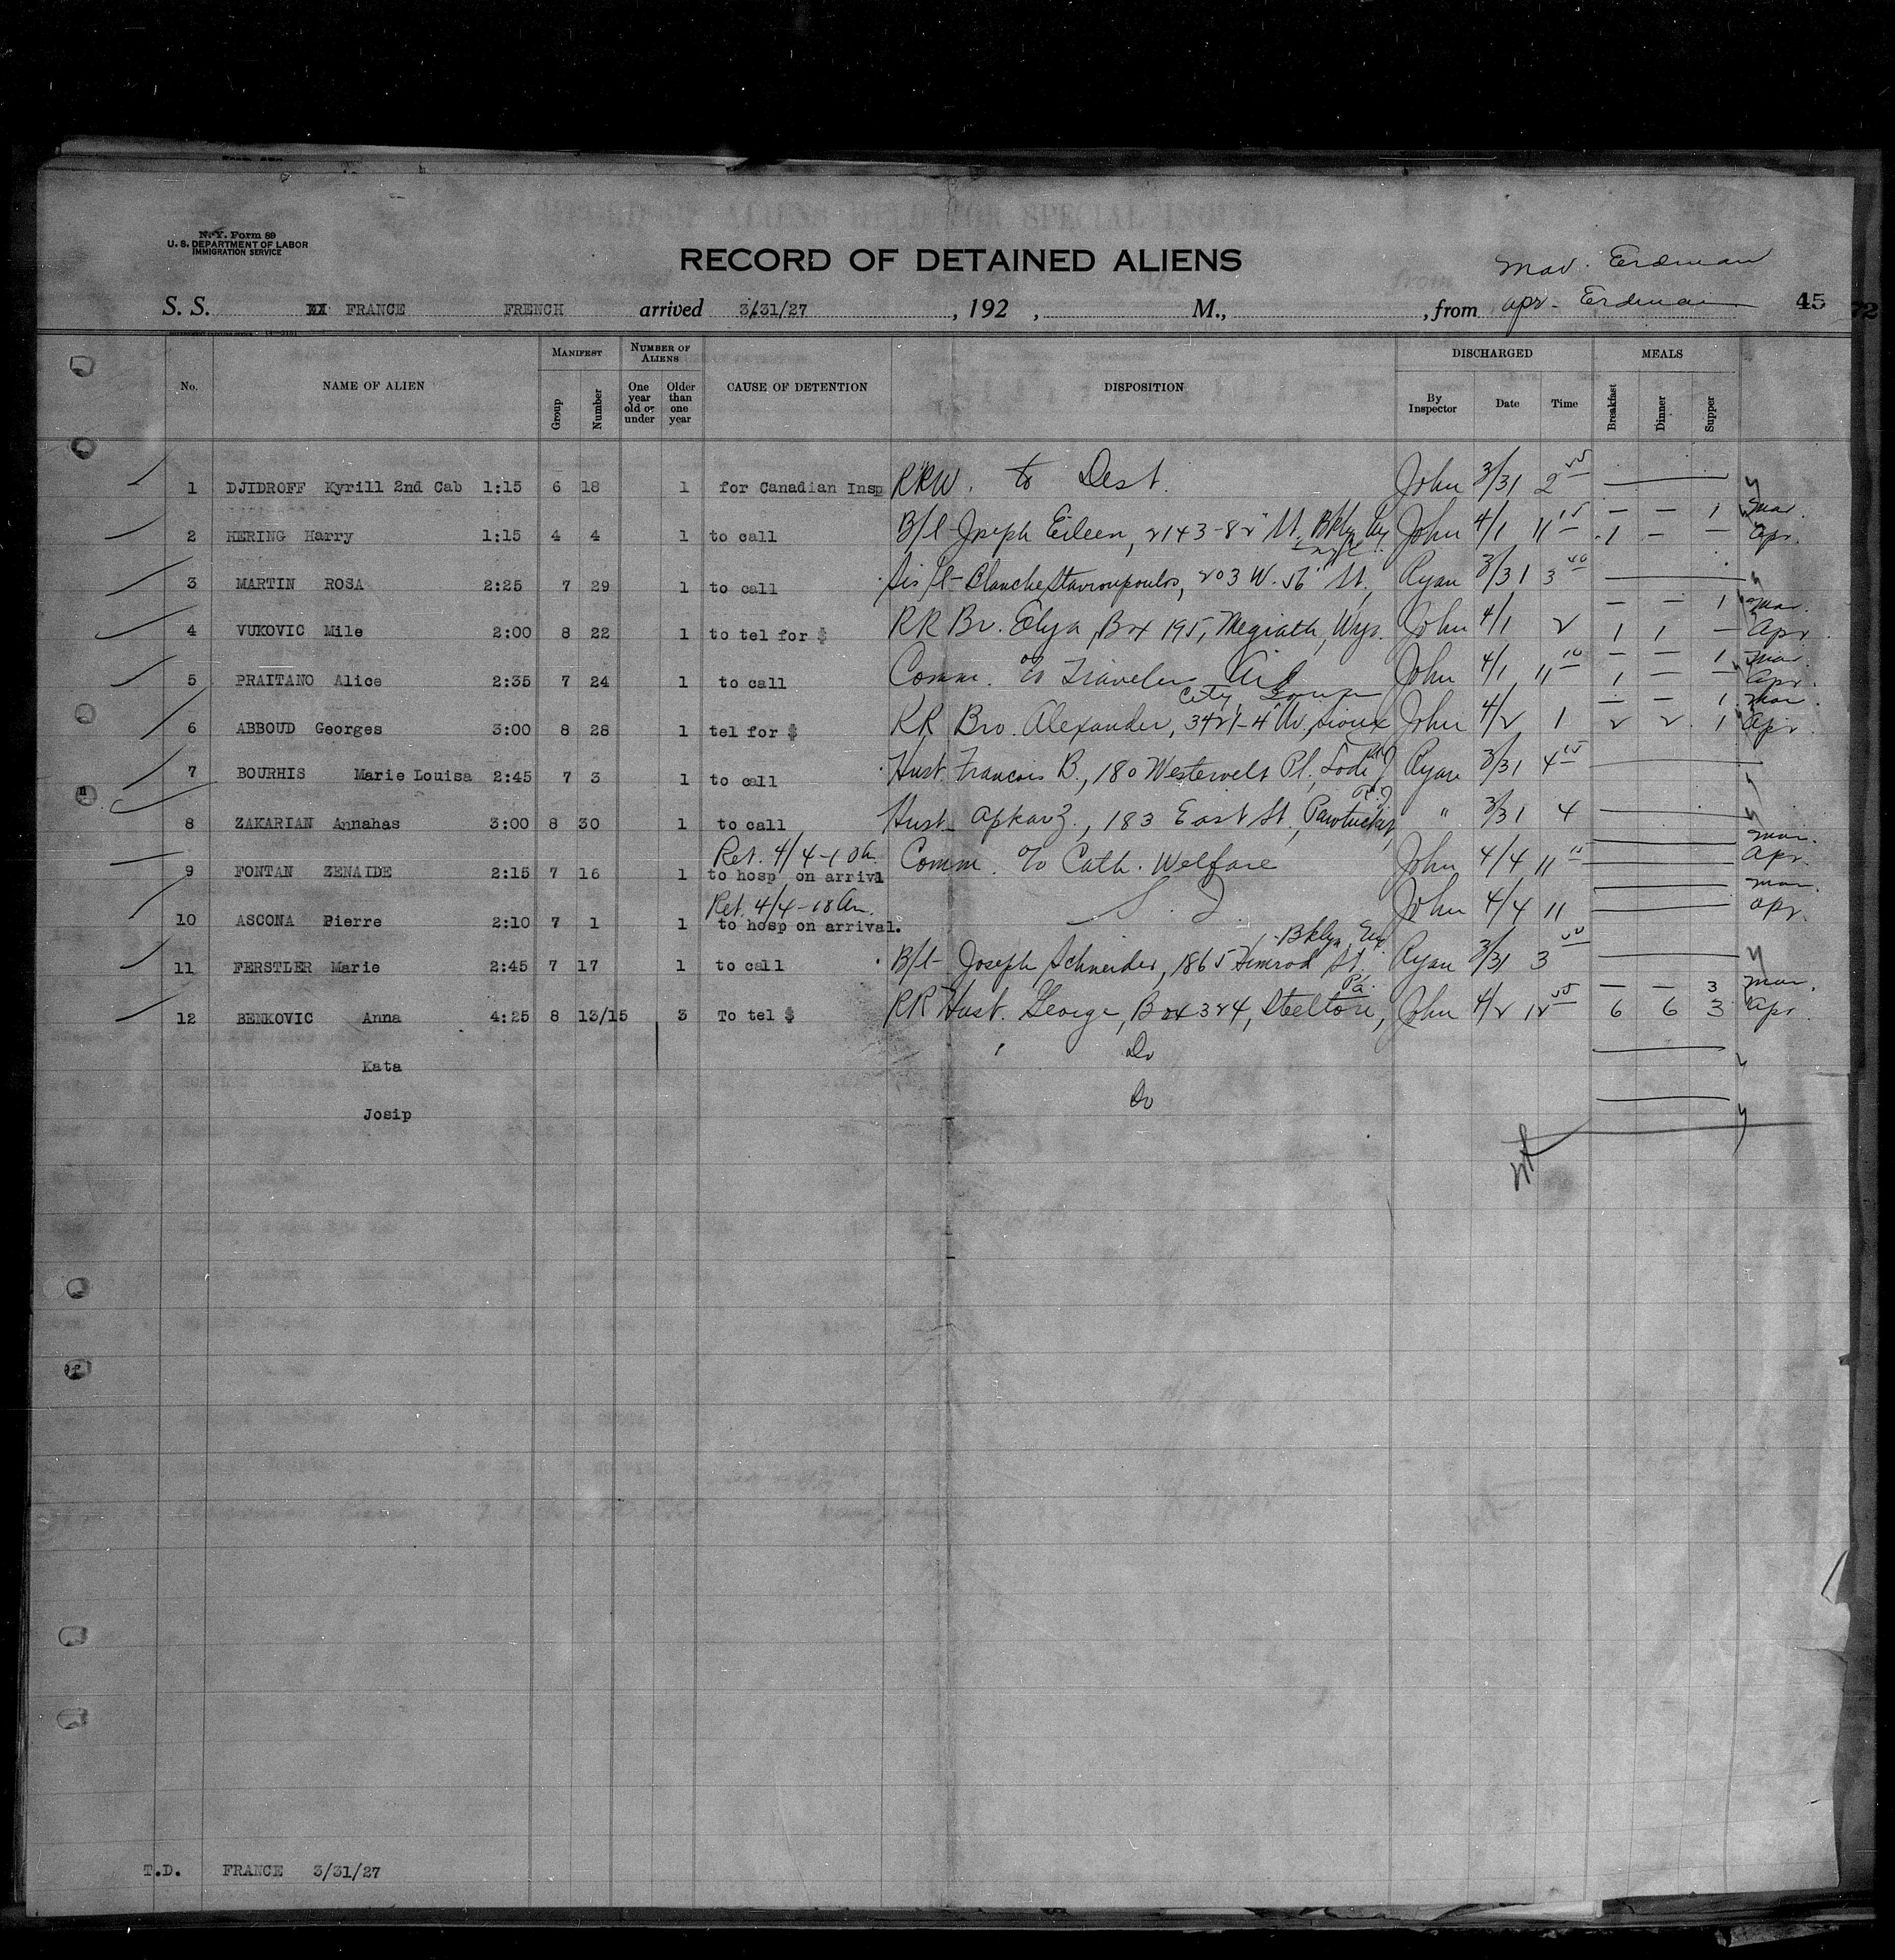 N.Y. Form 89
U. S. DEPARTMENT OF LABOR
IMMIGRATION SERVICE
RECORD OF DETAINED ALIENS
Mar. Erdman
S. S. FRANCE FRENCH arrived 3/31/27, 192 , M., , from Apr - Erdman 45 72
No. NAME OF ALIEN MANIFEST Group Number NUMBER OF ALIENS One year old or under Older than one year CAUSE OF DETENTION DISPOSITION DISCHARGED By Inspector Date Time MEALS Breakfast Dinner Supper
1 DJIDROFF Kyrill 2nd Cab 1:15 6 18 1 for Canadian Insp RRW. to Dest. John 3/31 2
2 HERING Harry 1:15 4 4 1 to call B/l- Joseph Eileen, 2143-82" St., Bklyn John 4/1 11 15 — — 1 Mar. 1 — — Apr.
3 MARTIN ROSA 2:25 7 29 1 to call Sis/l- Blanche Stavroupoulos, 203 W. 56" St., N.Y.C. Ryan 3/31 3 40
4 VUKOVIC Mile 2:00 8 22 1 to tel for $ RR Br. Elya, Box 195, Megeath, Wyo. John 4/1 2 — — 1 Mar. 1 1 — Apr.
5 PRAITANO Alice 2:35 7 24 1 to call Comm. % Travelers Aid John 4/1 11 10 — — 1 Mar. 1 — — Apr.
6 ABBOUD Georges 3:00 8 28 1 tel for $ RR Bro. Alexander, 3421-4" Av., Sioux City, Iowa John 4/2 1 — — 1 Mar 2 2 1 Apr.
7 BOURHIS Marie Louisa 2:45 7 3 1 to call Hust. Francois B., 180 Westervelt Pl., Lodi Ryan 3/31 4 15
8 ZAKARIAN Annahas 3:00 8 30 1 to call Hust- Apkar Z., 183 East St., Pawtucket, R.I. " 3/31 4
9 FONTAN ZENAIDE 2:15 7 16 1 Ret. 4/4-10 to hosp on arrivl Comm. % Cath. Welfare John 4/4 11 15 Mar. Apr.
10 ASCONA Pierre 2:10 7 1 1 Ret. 4/4-10 to hosp on arrival. S. I. John 4/4 11 Mar. Apr.
11 FERSTLER Marie 2:45 7 17 1 to call B/l- Joseph Schneider, 1865 Himrod St., Bklyn Ryan 3/31 3
12 BENKOVIC Anna 4:25 8 13/15 3 To tel $ RR Hust. George, Box 324, Steelton, Pa. John 4/2 12 — — 3 Mar. 6 6 3 Apr.
Kata Do
Josip Do
T.D. FRANCE 3/31/27